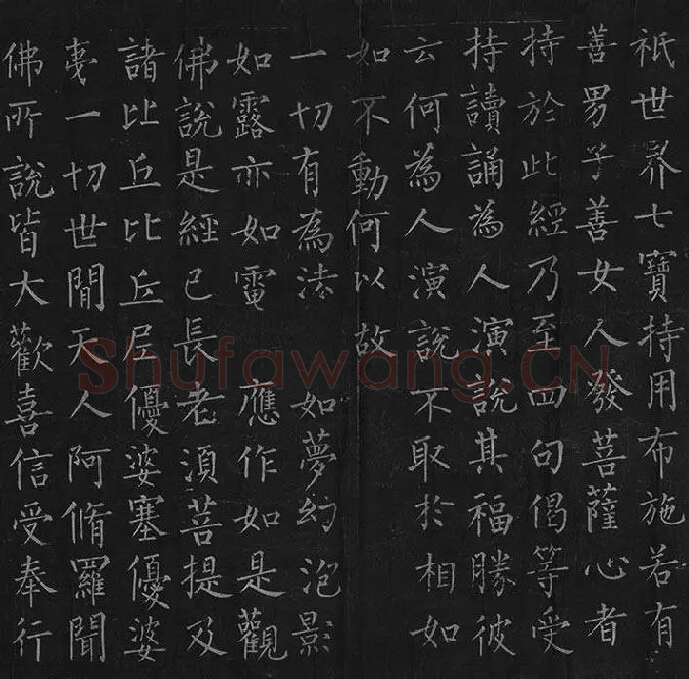 祇世界七寶持用布施若有
善男子善女人發菩薩心者
持於此經乃至四句偈等受
持讀誦為人演說其福勝彼
云何為人演說不取於相如
如不動何以故
一切有為法 如夢幻泡影
如露亦如電 應作如是觀
佛說是經已長老須菩提及
諸比丘比丘尼優婆塞優婆
夷一切世間天人阿脩羅聞
佛所說皆大歡喜信受奉行
Shufawang.CN